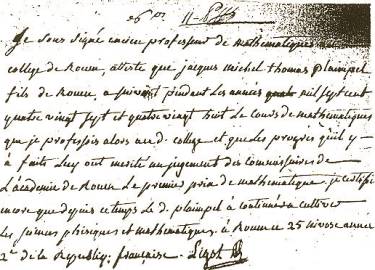 Je sous signé ancien professeur de mathematiques au
college de Rouen, atteste que jacques michel thomas plaimpel
fils de Rouen, a suivi pendant les années mil sept cent
quatre vingt sept et quatre vingt huit le Cours de mathematiques
que je professois alors aud. college et que les progres qu'il y
a faits luy ont merité au jugement des commissaires de
L'academie de Rouen le premier prix de mathematique. je certifie
encore que depuis ce temps le d. plaimpel a continué a cultiver
les sciences phisiques et mathematiques, à Rouen ce 25 nivose année
2e de la Republiq. francaise.